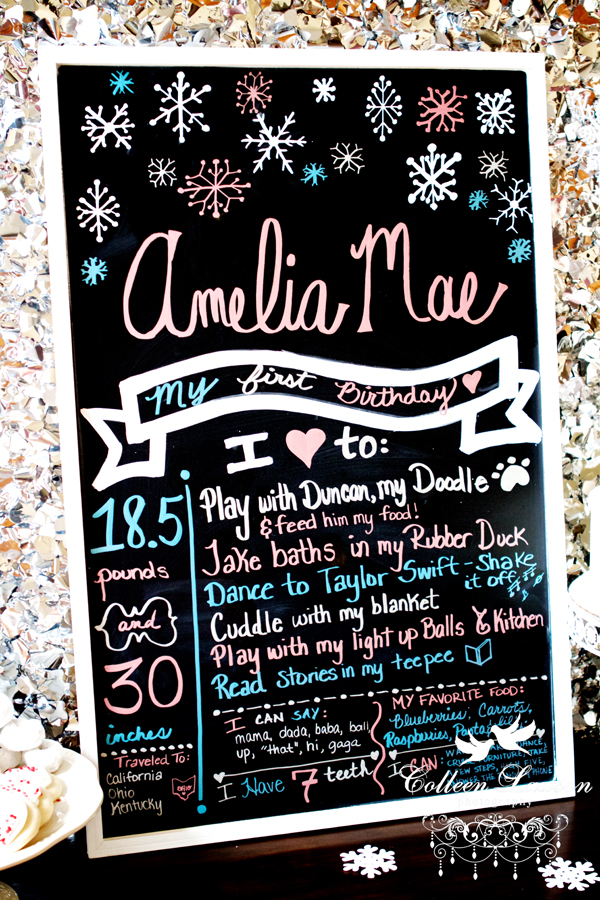 Amelia Mae
My first Birthday
I ♥ to:
18.5
pounds
and
30
inches
Play with Duncan, my Doodle
& feed him my food!
Take baths in my Rubber Duck
Dance to Taylor Swift - Shake
it off
Cuddle with my blanket
Play with my light up Balls & Kitchen
Read Stories in my teepee
Traveled To:
California
Ohio
Kentucky
OHIO
I CAN SAY:
mama, dada, baba, ball,
up, "that", hi, gaga
I Have 7 teeth
MY FAVORITE FOOD:
Blueberries, Carrots,
Raspberries,
I CAN:
FURNITURE, TAKE
FEW STEPS, HIGH FIVE,
THE PHONE
Colleen